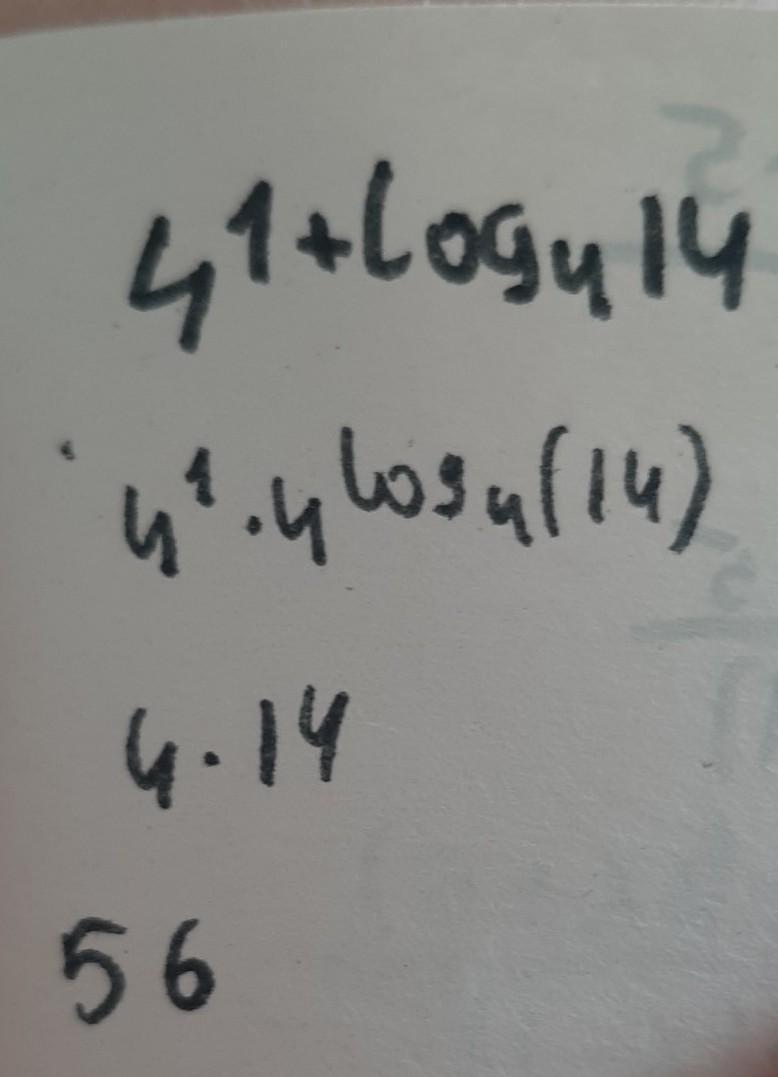 4^{1+log_4 14}
4^1 · 4^{log_4(14)}
4 · 14
56